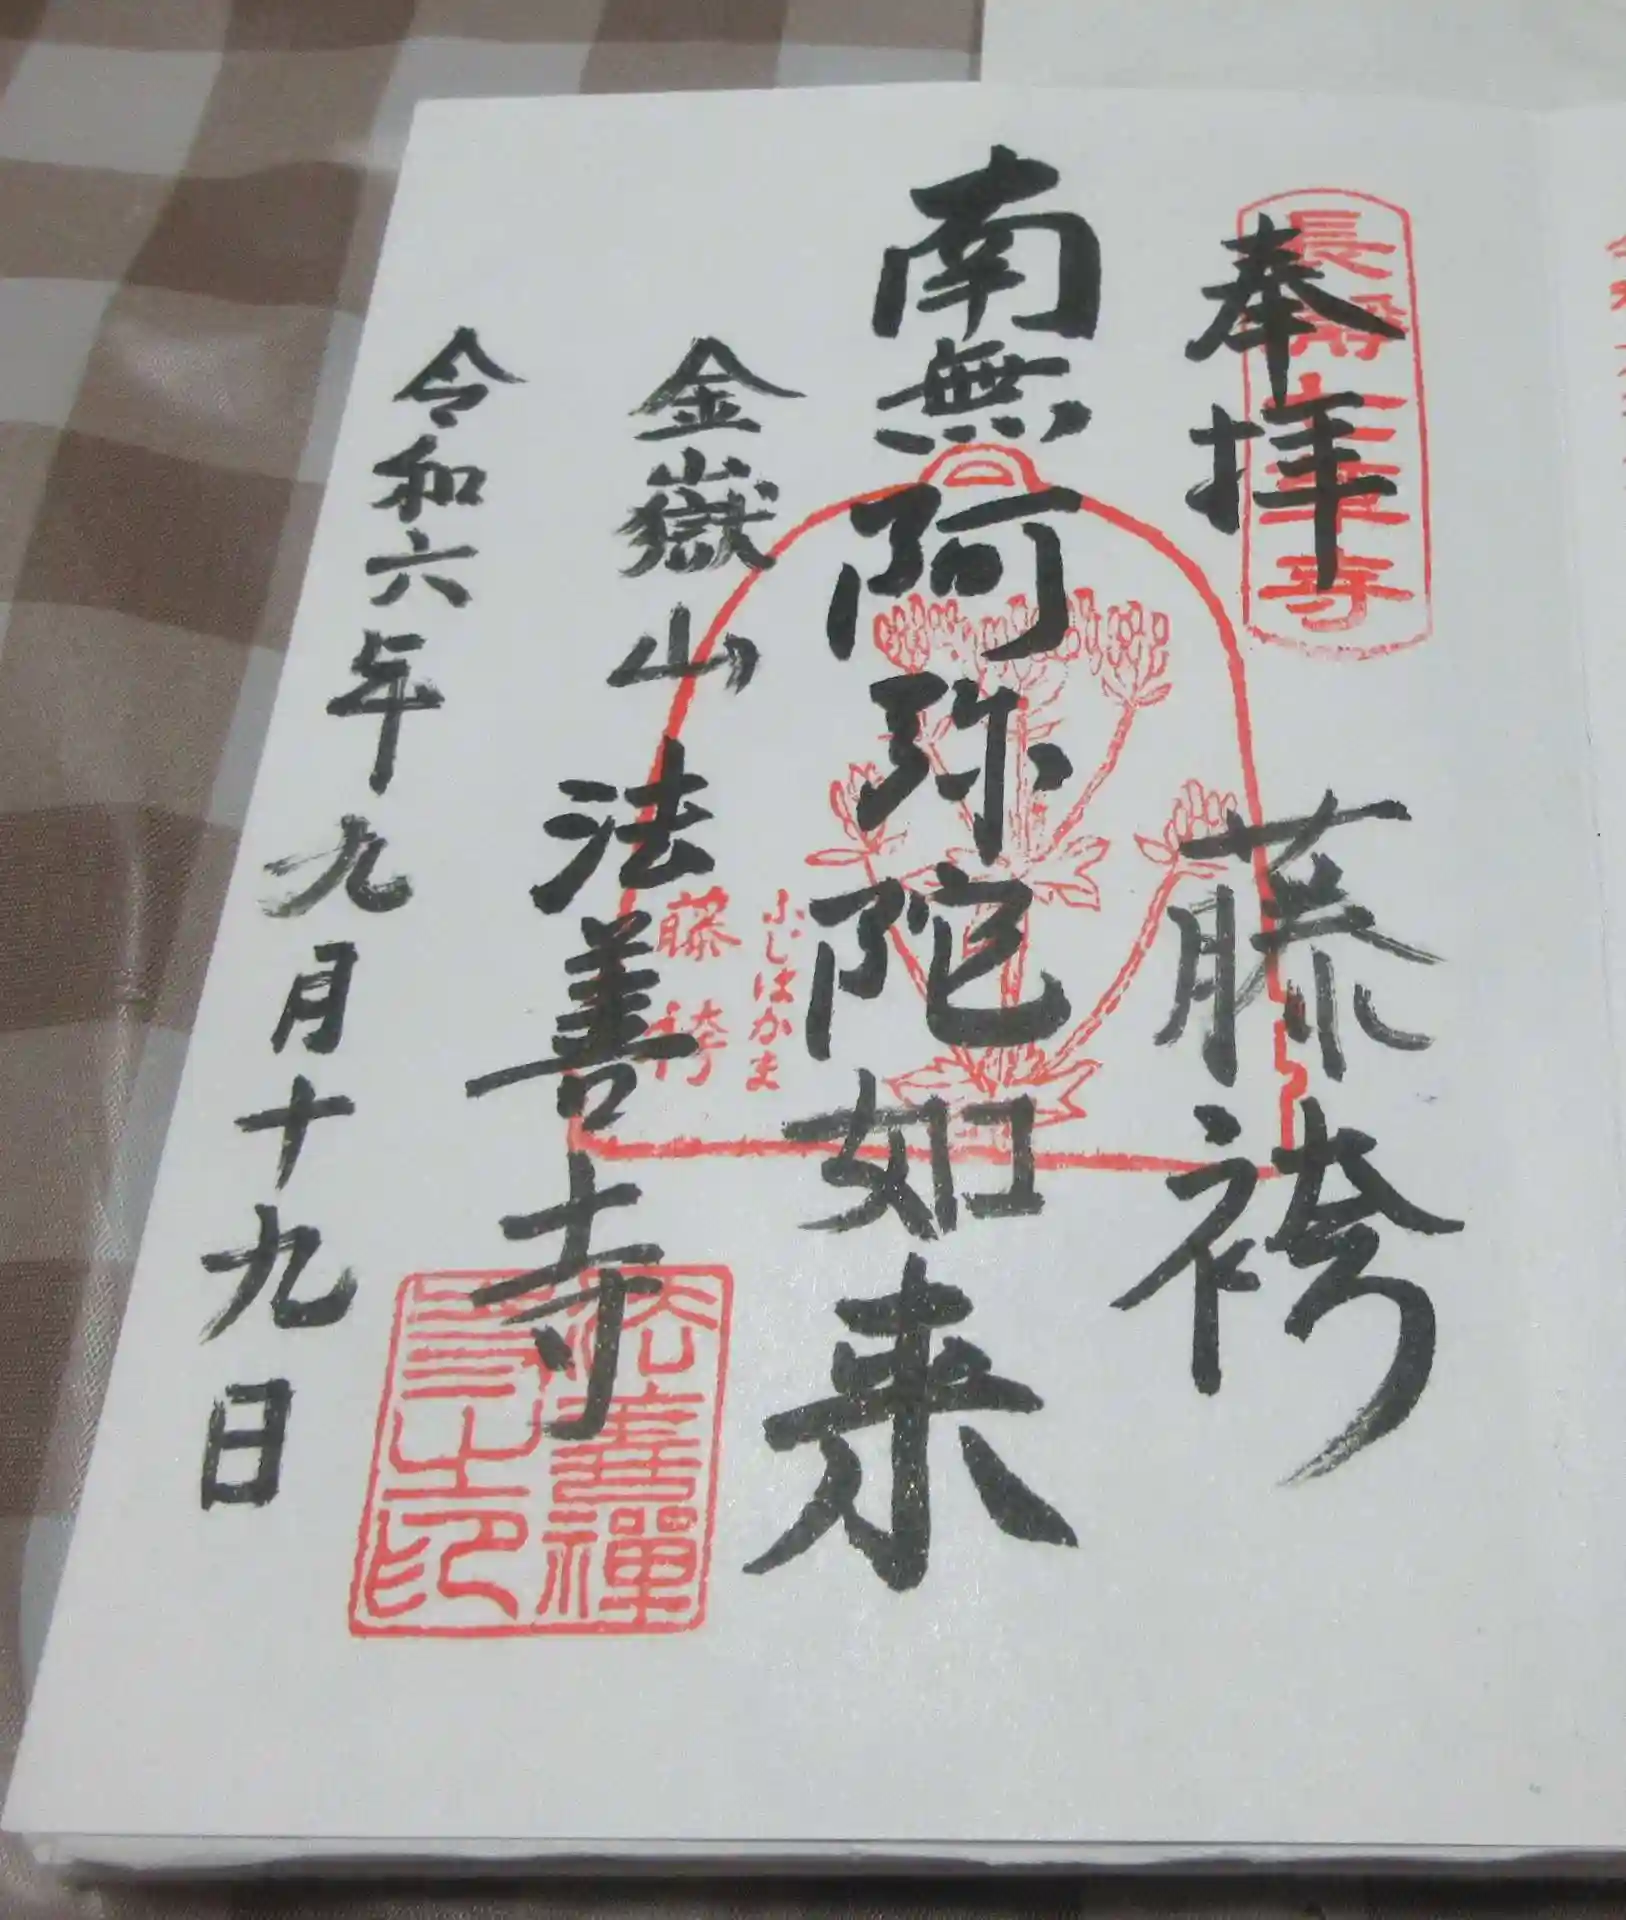 奉拝
長瀞七草寺
藤袴
南無阿弥陀如来
ふじはかま
藤袴
金嶽山
法善寺
法善禅
寺之印
令和六年九月十九日